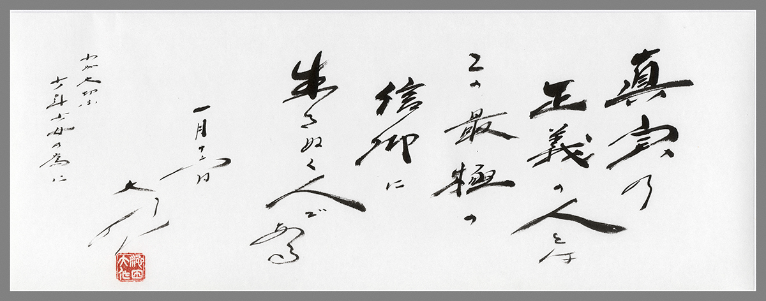 真実の
正義の人とは
この最極の
信仰に
生きぬく人である
一月十六日
大作
池田
大作